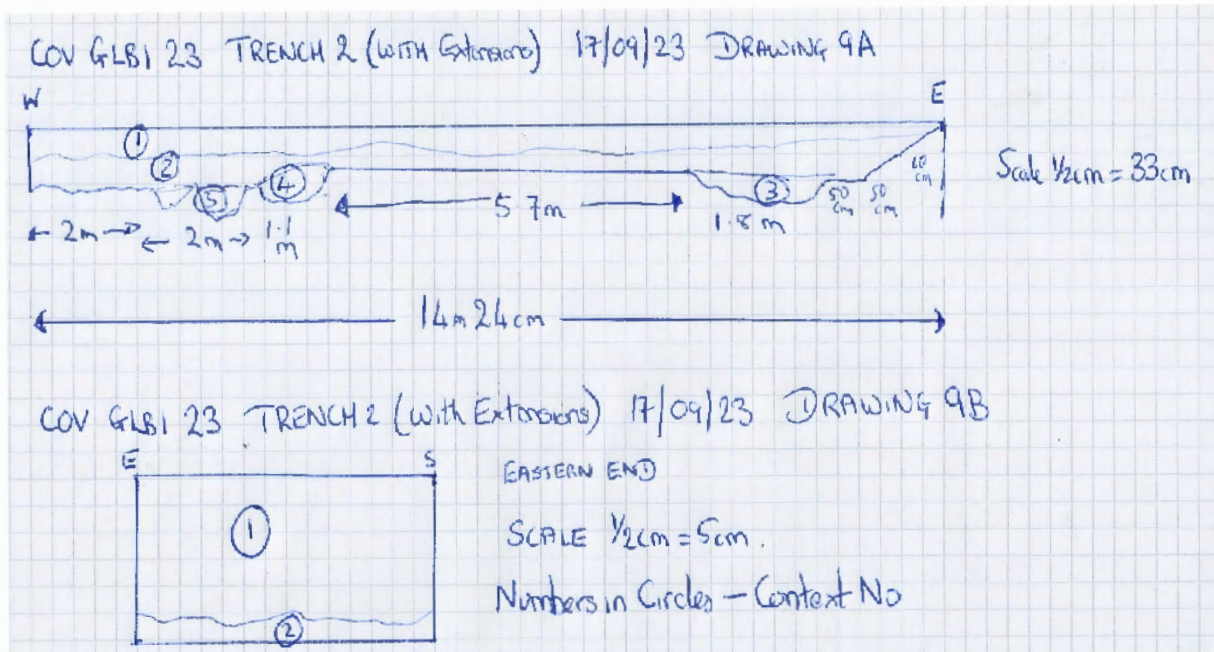 COV GLB1 23 TRENCH 2 (WITH Extensions) 17/09/23 DRAWING 9A
W E
1
2
5 4 3
60 cm
50 cm 50 cm
Scale 1/2cm = 33cm
2m 2m 1.1 m 5.7m 1.8m
14m 24cm
COV GLB1 23 TRENCH 2 (With Extensions) 17/09/23 DRAWING 9B
E S
EASTERN END
1
SCALE 1/2cm = 5cm.
Numbers in Circles – Context No
2